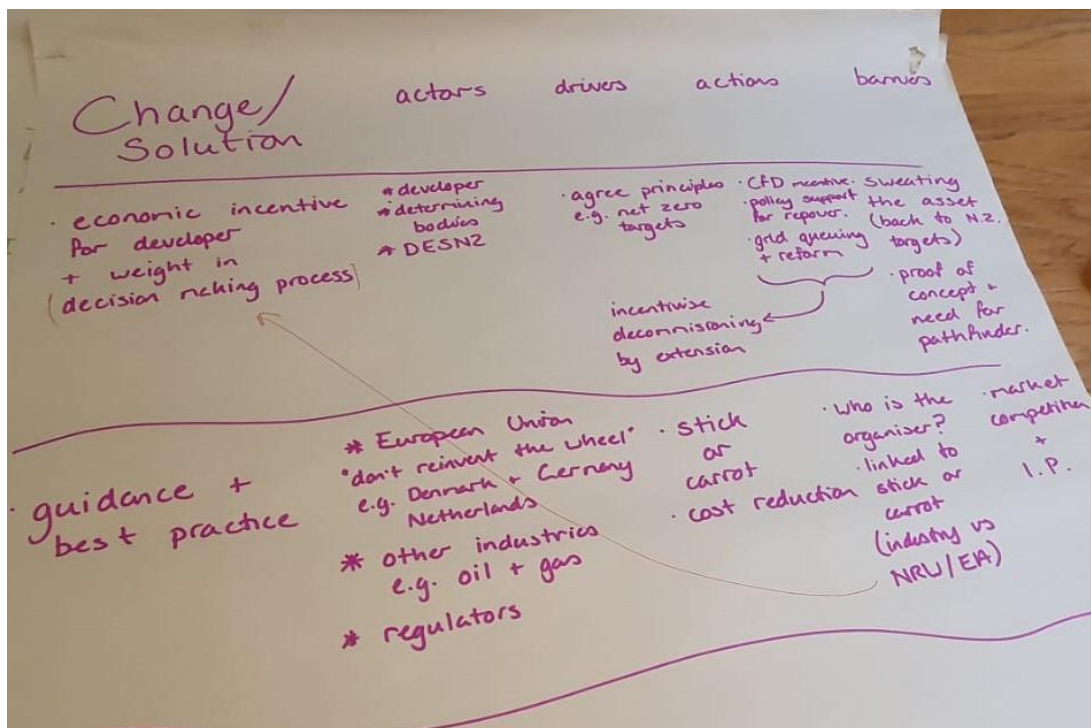 Change/
Solution
actors
drives
actions
barriers
· economic incentive
for developer
+ weight in
(decision making process)
* developer
* determining
bodies
* DESNZ
· agree principles
e.g. net zero
targets
· CFD incentive.
· policy support
for repower.
· grid queuing
+ reform
incentivise
decommissioning
by extension
· sweating
the asset
(back to N.Z.
targets)
· proof of
concept +
need for
pathfinder.
· guidance +
best practice
* European Union
"don't reinvent the wheel"
e.g. Denmark + Germany
Netherlands
* other industries
e.g. oil + gas
* regulators
· stick
or
carrot
· cost reduction
· who is the
organiser?
· linked to
stick or
carrot
(industry vs
NRW/EA)
· market
competition
+
I.P.